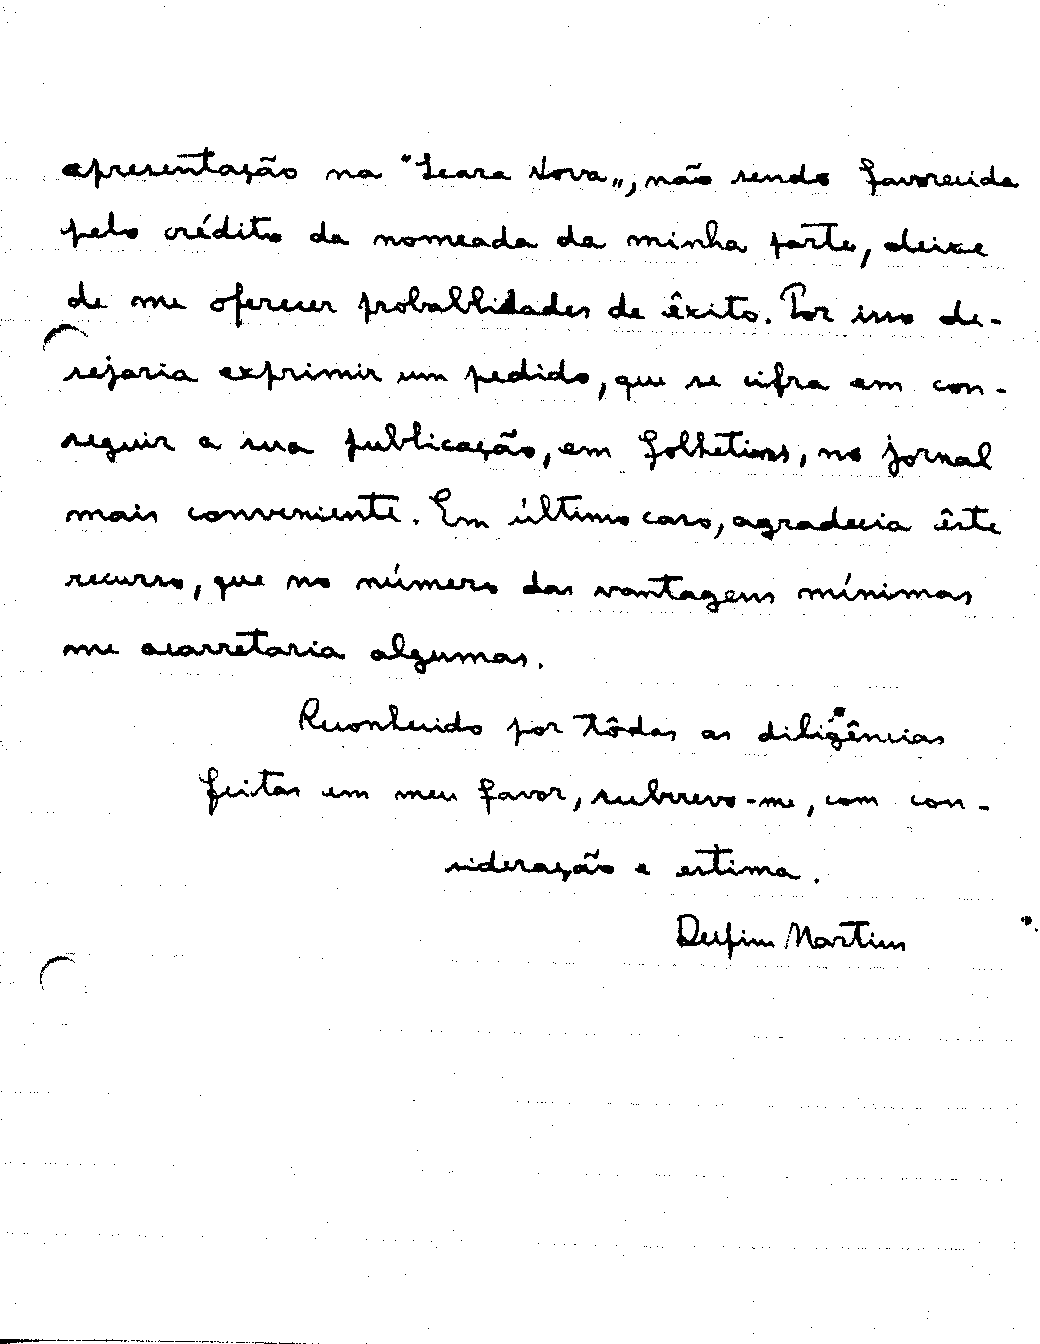 apresentação na "Seara Nova", não sendo favorecida
pelo crédito da nomeada da minha parte, deixe
de me oferecer probablidades de êxito. Por isso de-
sejaria exprimir um pedido, que se cifra em con-
seguir a sua publicação, em folhetins, no jornal
mais conveniente. Em último caso, agradecia êste
recurso, que no número das vantagens mínimas
me acarretaria algumas.
Reconhecido por tôdas as diligências
feitas em meu favor, subscrevo-me, com con-
sideração e estima.
Martins